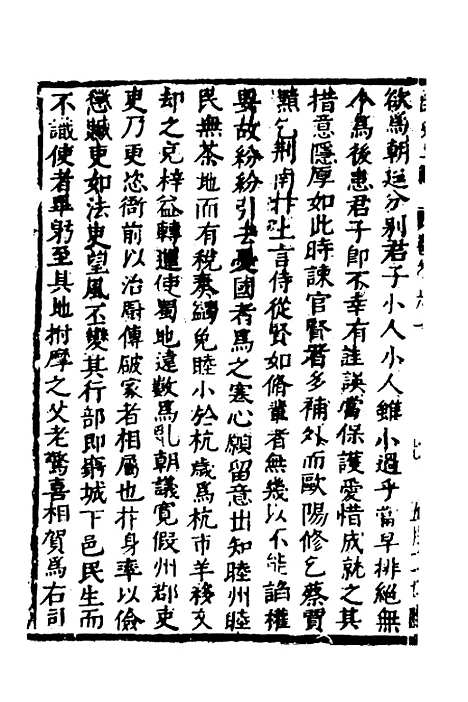 欲為朝廷分别君子小人小人雖小過乎當早排絕無
令為後患君子即不幸有詿誤當保護愛惜成就之其
措意隱厚如此時諫官賢者多補外而歐陽修乞蔡賈
黯乞荊南抃上言侍從賢如脩輩者無幾以不能諂權
要故紛紛引去憂國者為之寒心願留意出知睦州睦
民無茶地而有稅奏蠲免睦小於杭歲為杭市羊移文
却之充梓益轉運使蜀地遠數為亂朝議寬假州郡吏
吏乃更恣衙前以治厨傳破家者相屬也抃身率以儉
懲贓吏如法吏望風丕變其行部即窮城下邑民生而
不識使者畢躬至其地拊摩之父老驚喜相賀為右司